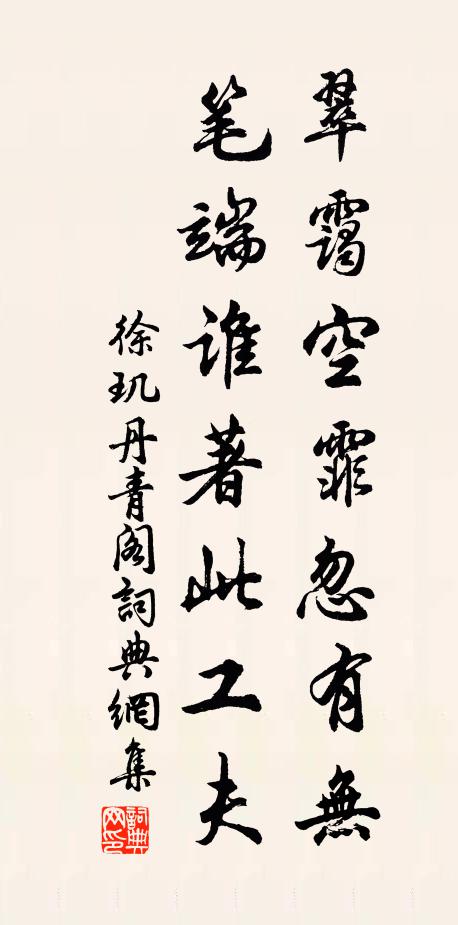 翠靄空霏忽有無
笔端谁著此工夫
徐玑丹青阁詞典網集
詞典网印